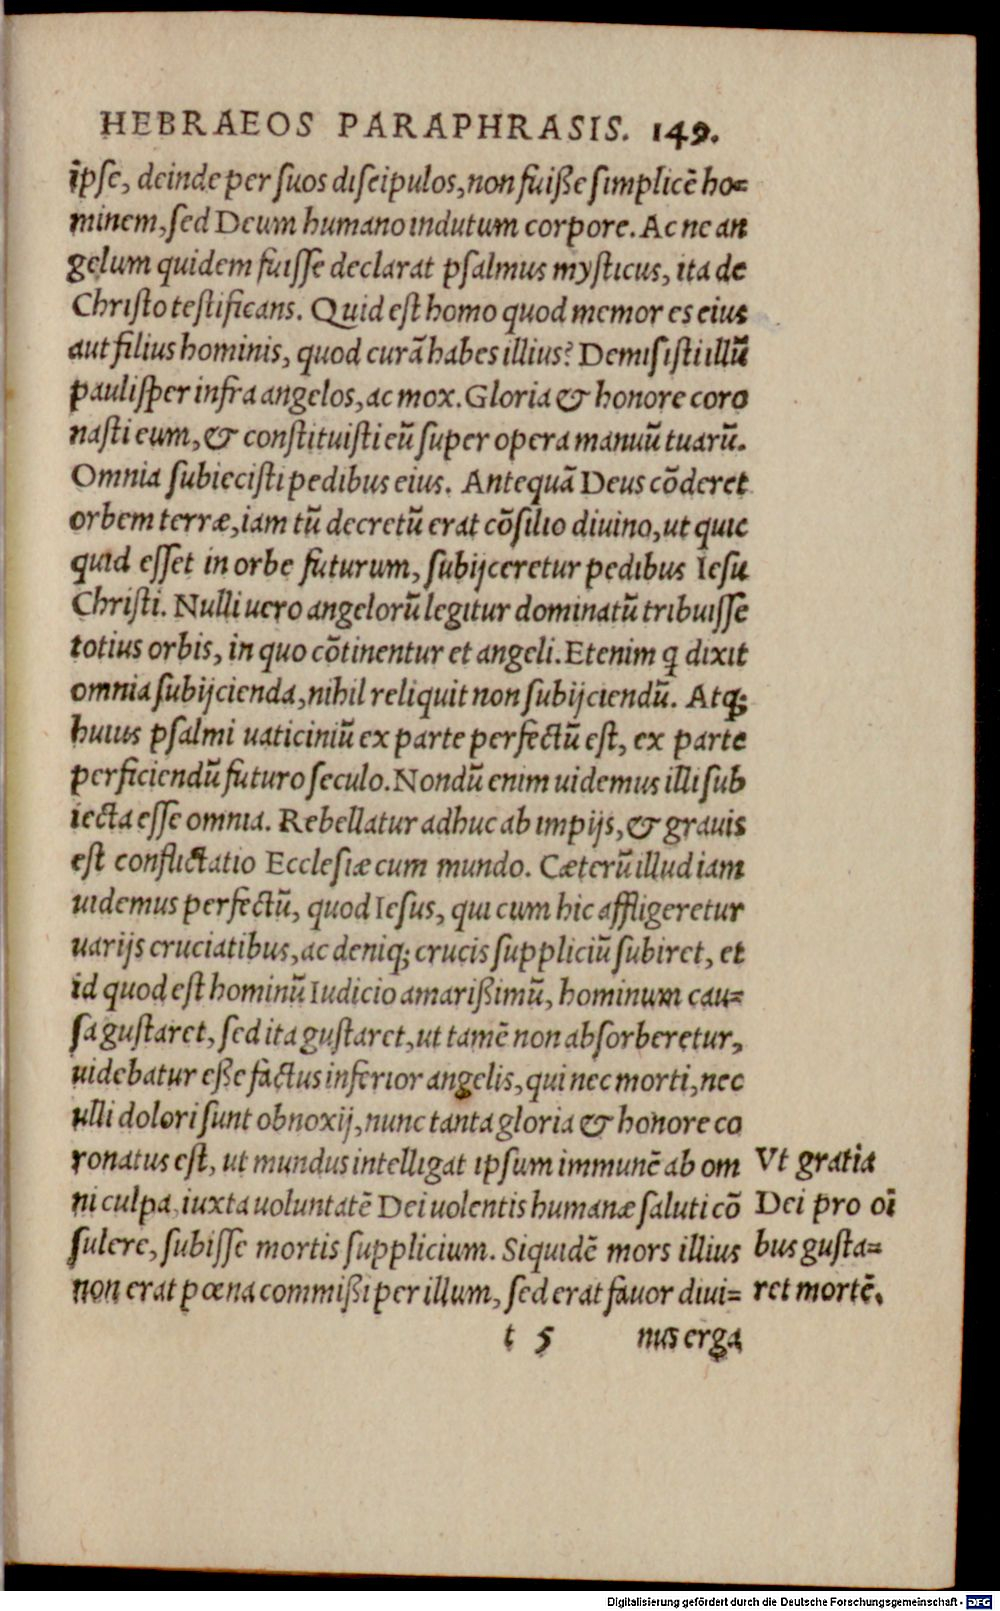 HEBRAEOS PARAPHRASIS. 149.
ip̄se, deinde per suos discipulos, non fuiße simplicē ho=
minem, sed Deum humano indutum corpore. Ac ne an
gelum quidem fuisse declarat psalmus mysticus, ita de
Christo testificans. Quid est homo quod memor es eius
aut filius hominis, quod curā habes illius? Demisisti illū
paulisper infra angelos, ac mox. Gloria & honore coro
nasti eum, & constituisti eū super opera manuū tuarū.
Omnia subiecisti pedibus eius. Antequā Deus cōderet
orbem terræ, iam tū decretū erat cōsilio diuino, ut quic
quid esset in orbe futurum, subijceretur pedibus Iesu
Christi. Nulli uero angelorū legitur dominatū tribuisse
totius orbis, in quo cōtinentur et angeli. Etenim q dixit
omnia subijcienda, nihil reliquit non subijciendū. Atq;
huius psalmi uaticiniū ex parte perfectū est, ex parte
perficiendū futuro seculo. Nondū enim uidemus illi sub
iecta esse omnia. Rebellatur adhuc ab impijs, & grauis
est conflictatio Ecclesiæ cum mundo. Cæterū illud iam
uidemus perfectū, quod Iesus, qui cum hic affligeretur
uarijs cruciatibus, ac deniq; crucis suppliciū subiret, et
id quod est hominū Iudicio amarißimū, hominum cau=
sa gustaret, sed ita gustaret, ut tamē non absorberetur,
uidebatur eße factus inferior angelis, qui nec morti, nec
ulli dolori sunt obnoxij, nunc tanta gloria & honore co
ronatus est, ut mundus intelligat ipsum immunē ab om
ni culpa, iuxta uoluntatē Dei uolentis humanæ saluti cō
sulere, subisse mortis supplicium. Siquidē mors illius
non erat pœna commißi per illum, sed erat fauor diui=
Vt gratia
Dei pro oī
bus gusta=
ret mortē.
t 5 nus erga
Digitalisierung gefördert durch die Deutsche Forschungsgemeinschaft - DFG